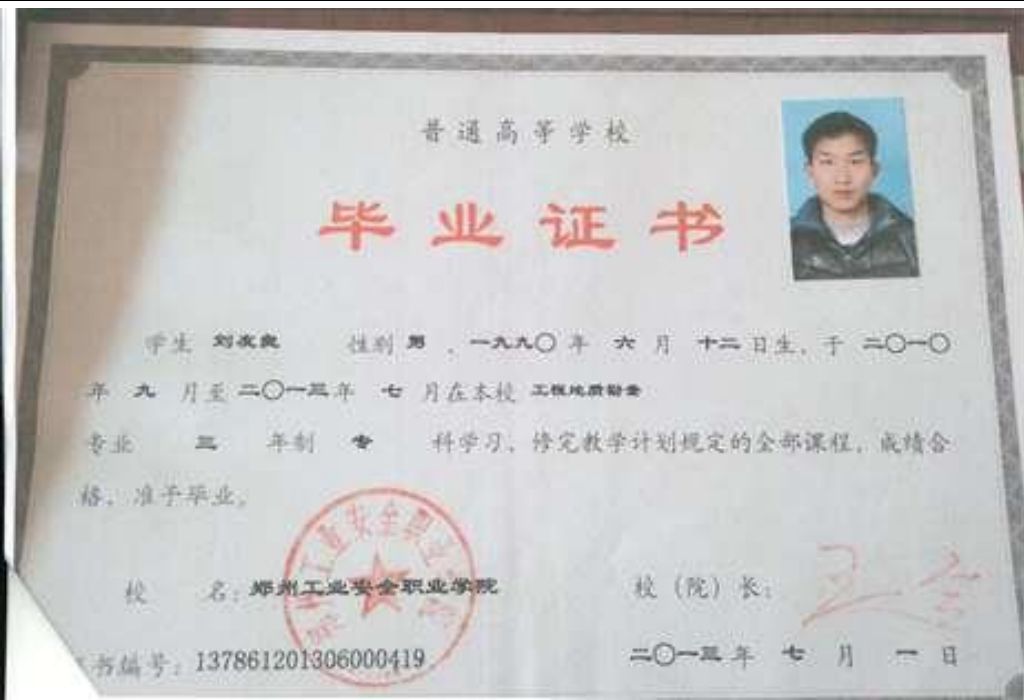 普通高等学校
毕业证书
学生 刘友良 性别 男 ，一九九〇年 六 月 十二日生，于 二〇一〇
年 九 月至 二〇一三年 七 月在本校 工程地质勘查
专业 三 年制 专 科学习，修完教学计划规定的全部课程，成绩合
格，准予毕业。
校 名：郑州工业安全职业学院
校（院）长：
书编号：137861201306000419
二〇一三年 七 月 一 日